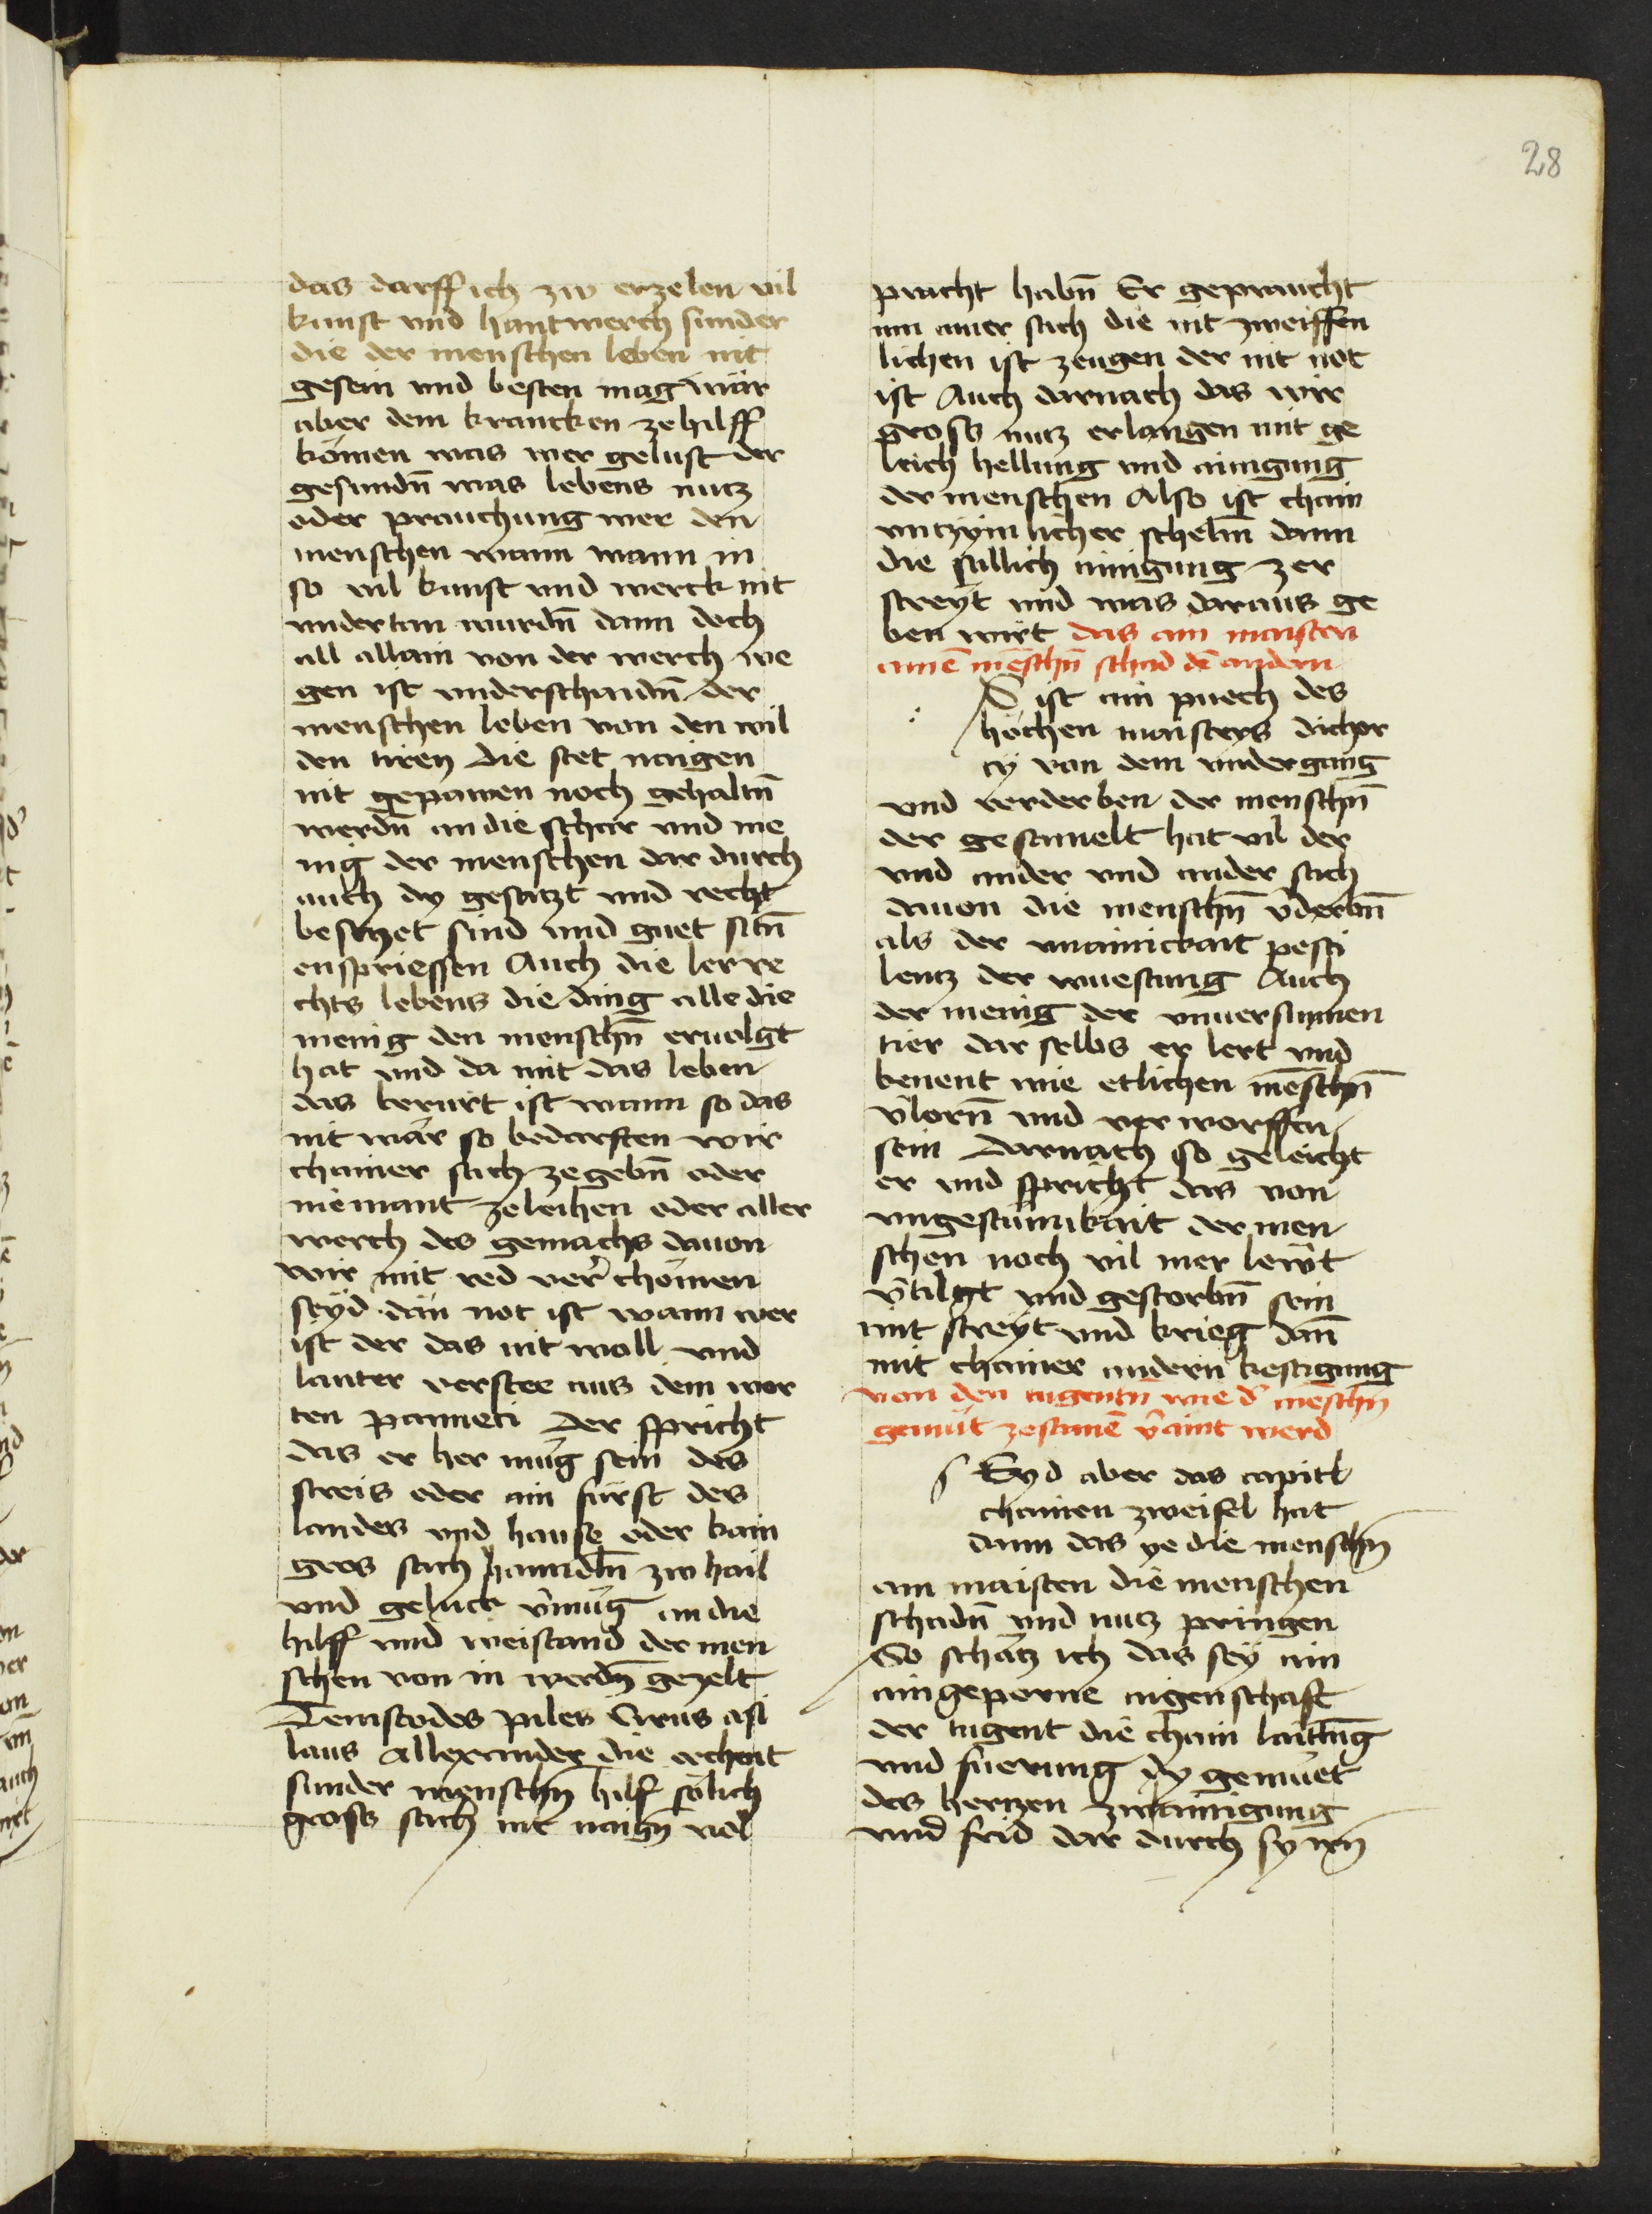 28
das darff ich zw erzelen vil
kunst vnd hantwerch sunder
die der menschen leben nit
gesein vnd besten mag wär
aber dem krancken ze hilff
kömen was wer gelust der
gesundn̄ was lebens nutz
oder prauchung wer den
menschen wann wann in
so vil kunst vnd werck nit
vndertan wurdn̄ dann doch
all allain von der werch we
gen ist vnderschaidn̄ der
menschen leben von den wil
den tiren die stet naigen
nit gepawen noch gehaltn̄
werdn̄ an die schar vnd me
nig der menschen dar durch
auch dy gesatzt vnd recht
besetzet sind vnd guet sitn̄
enspriessen Auch die ler re
chts lebens die ding alle die
menig den menschn̄ eruolgt
hat vnd da mit das leben
das berurt ist wann so das
nit wär so bedarften wir
chainer sach ze gebn̄ oder
niemant ze leihen oder aller
werch des gemachs dauon
wir mit red ver chömen
seyd dan not ist wann wer
ist der das nit woll vnd
lauter verstee aus dem wor
ten panneti der spricht
das er her mug sein des
streis oder ain fürst des
landes vnd hause oder kain
gros sach hanndln̄ zw hail
vnd geluck v̄mug an die
hilff vnd weistand der men
schen von in werdn̄ gezelt
Temistodes piles Cirus asi
laus Allexander die rechent
sunder menschn̄ hilf sölich
gross sach nit naign̄ vol
pracht habn̄ Er gepraucht
nn ainer sach die nit zweiffen
lichen ist zeugen der nit not
ist Auch darnach das wir
gross nutz erlangen mit ge
leich hellung vnd ainigung
der menschen Also ist chain
vntzymlicher schelm̄ dann
die sällich ainigung zer
streyt vnd was daraus ge
ben wirt das am maisten
ainē mēschn̄ schad dē andern
S ist ain puech des
höchen maisters dicher
cy von dem vndergang
vnd verderben der menschn̄
der gesamelt hat vil der
vnd ander vnd ander sach
dauon die menschn̄ v̄derbn̄
als der vnainickait pesti
lentz der wuestung Auch
der menig der vnuersunnen
tier dar selbs er lert vnd
benent wie etlichen mēschn̄
v̄lorn̄ vnd ver worffen
sein Darnach so geleicht
er vnd spricht das von
vngestümikait der men
schen noch vil mer lewt
v̄tilgt vnd gestorbn̄ sein
mit streyt vnd krieg dan̄
mit chainer andern kestigung
von den tugentn̄ wie d' mēschn̄
gemüt zesamē v̄aint werd
SEyd aber das capitl
chainen zweifel hat
dann das ye die menschn̄
am maisten die menschen
schadn̄ vnd nutz pringen
So schatz ich das sey ain
aingeporne aigenschaft
der tugent die chain laittūg
vnd fuerung dy gemuet
des hertzen zw ainigung
vnd frid dar durch sy irn̄